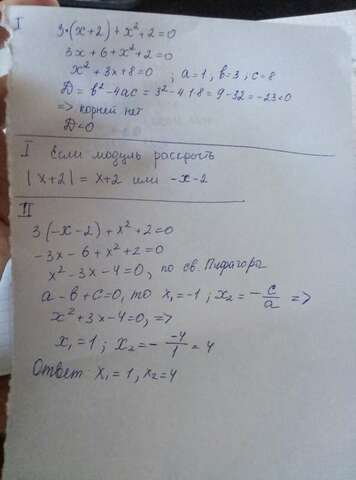 I
3·(x+2)+x²+2=0
3x+6+x²+2=0
x²+3x+8=0 ; a=1, b=3, c=8
D=b²-4ac=3²-4·1·8=9-32=-23<0
=> корней нет
D<0
I если модуль раскрыть
|x+2|=x+2 или -x-2
II
3(-x-2)+x²+2=0
-3x-6+x²+2=0
x²-3x-4=0, по св. Пифагора
a-b+c=0, то x₁=-1; x₂=-c/a =>
x²+3x-4=0, =>
x₁=1; x₂=- -4/1=4
Ответ: x₁=1, x₂=4